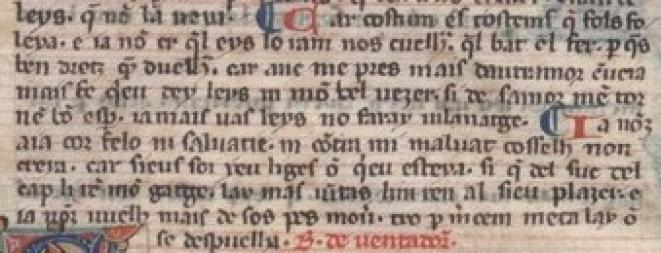 leys. q̄ nō la neui.
Car costum es tostems q̄ fols fo
leia. e ia nō er q̄l eys lo iam nos cuelh. q̄l bat el fer. p q̄s
ben dretz q̄ duelh. car anc me pres mais dautramor ēueia
mais fe q̄eu dey leys ni mō bel uezer. si de samor mē tor
nē bō esp. iamais uas leys no faray uilanatge. Ia nōz
aia cor felo ni saluatie. ni cōtra mi maluat cosselh non
creia. car sieus soi seu liges o q̄eu esteia. si q̄ del suc del
cap li ren mō gatge. las mas iūtas lim ren al sieu plazer. e
ia nom uuelh mais de sos pes mou. tro p mcem meta lay o
se despuelha. B. de uentador.